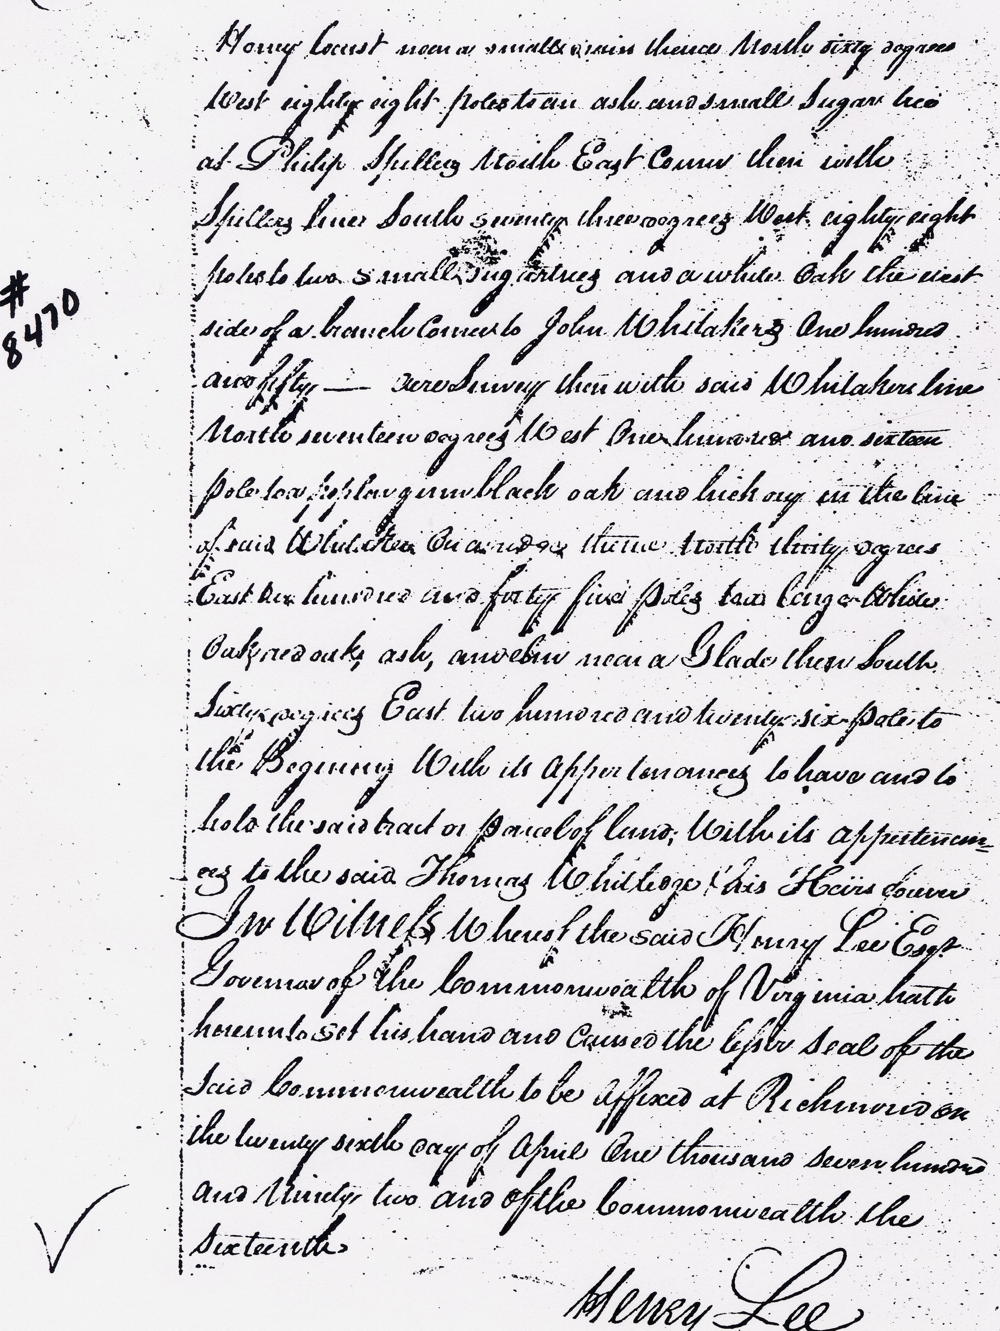 Honey locust near a small drain thence North sixty degrees
West eighty eight poles to an ash and small Sugar tree
at Philip Spillers North East Corner then with
Spillers line South seventy three degrees West eighty eight
poles to two small Sugartrees and a white Oak the west
side of a branch Corner to John Whitakers One hundred
and fifty — acre Survey then with said Whitakers line
North seventeen degrees West One hundred and sixteen
poles to a poplar gum black oak and hickory in the line
of said Whitaker On a ridge thence North thirty degrees
East hundred and forty five poles to a large White
Oak, red oak, ash, and elm near a Glade then South
Sixty degrees East two hundred and twenty six poles to
the Begining With its Appertenances to have and to
hold the said tract or parcel of land, With its appertenan=
es to the said Thomas Whitledge & his Heirs forever
In Witness Whereof the said Henry Lee Esqr
Governor of the Commonwealth of Virginia hath
hereunto set his hand and caused the lesser Seal of the
Said Commonwealth to be Affixed at Richmond on
the twenty sixth day of April One thousand seven hundred
and Ninety two and of the Commonwealth the
sixteenth
Henry Lee
#
8470